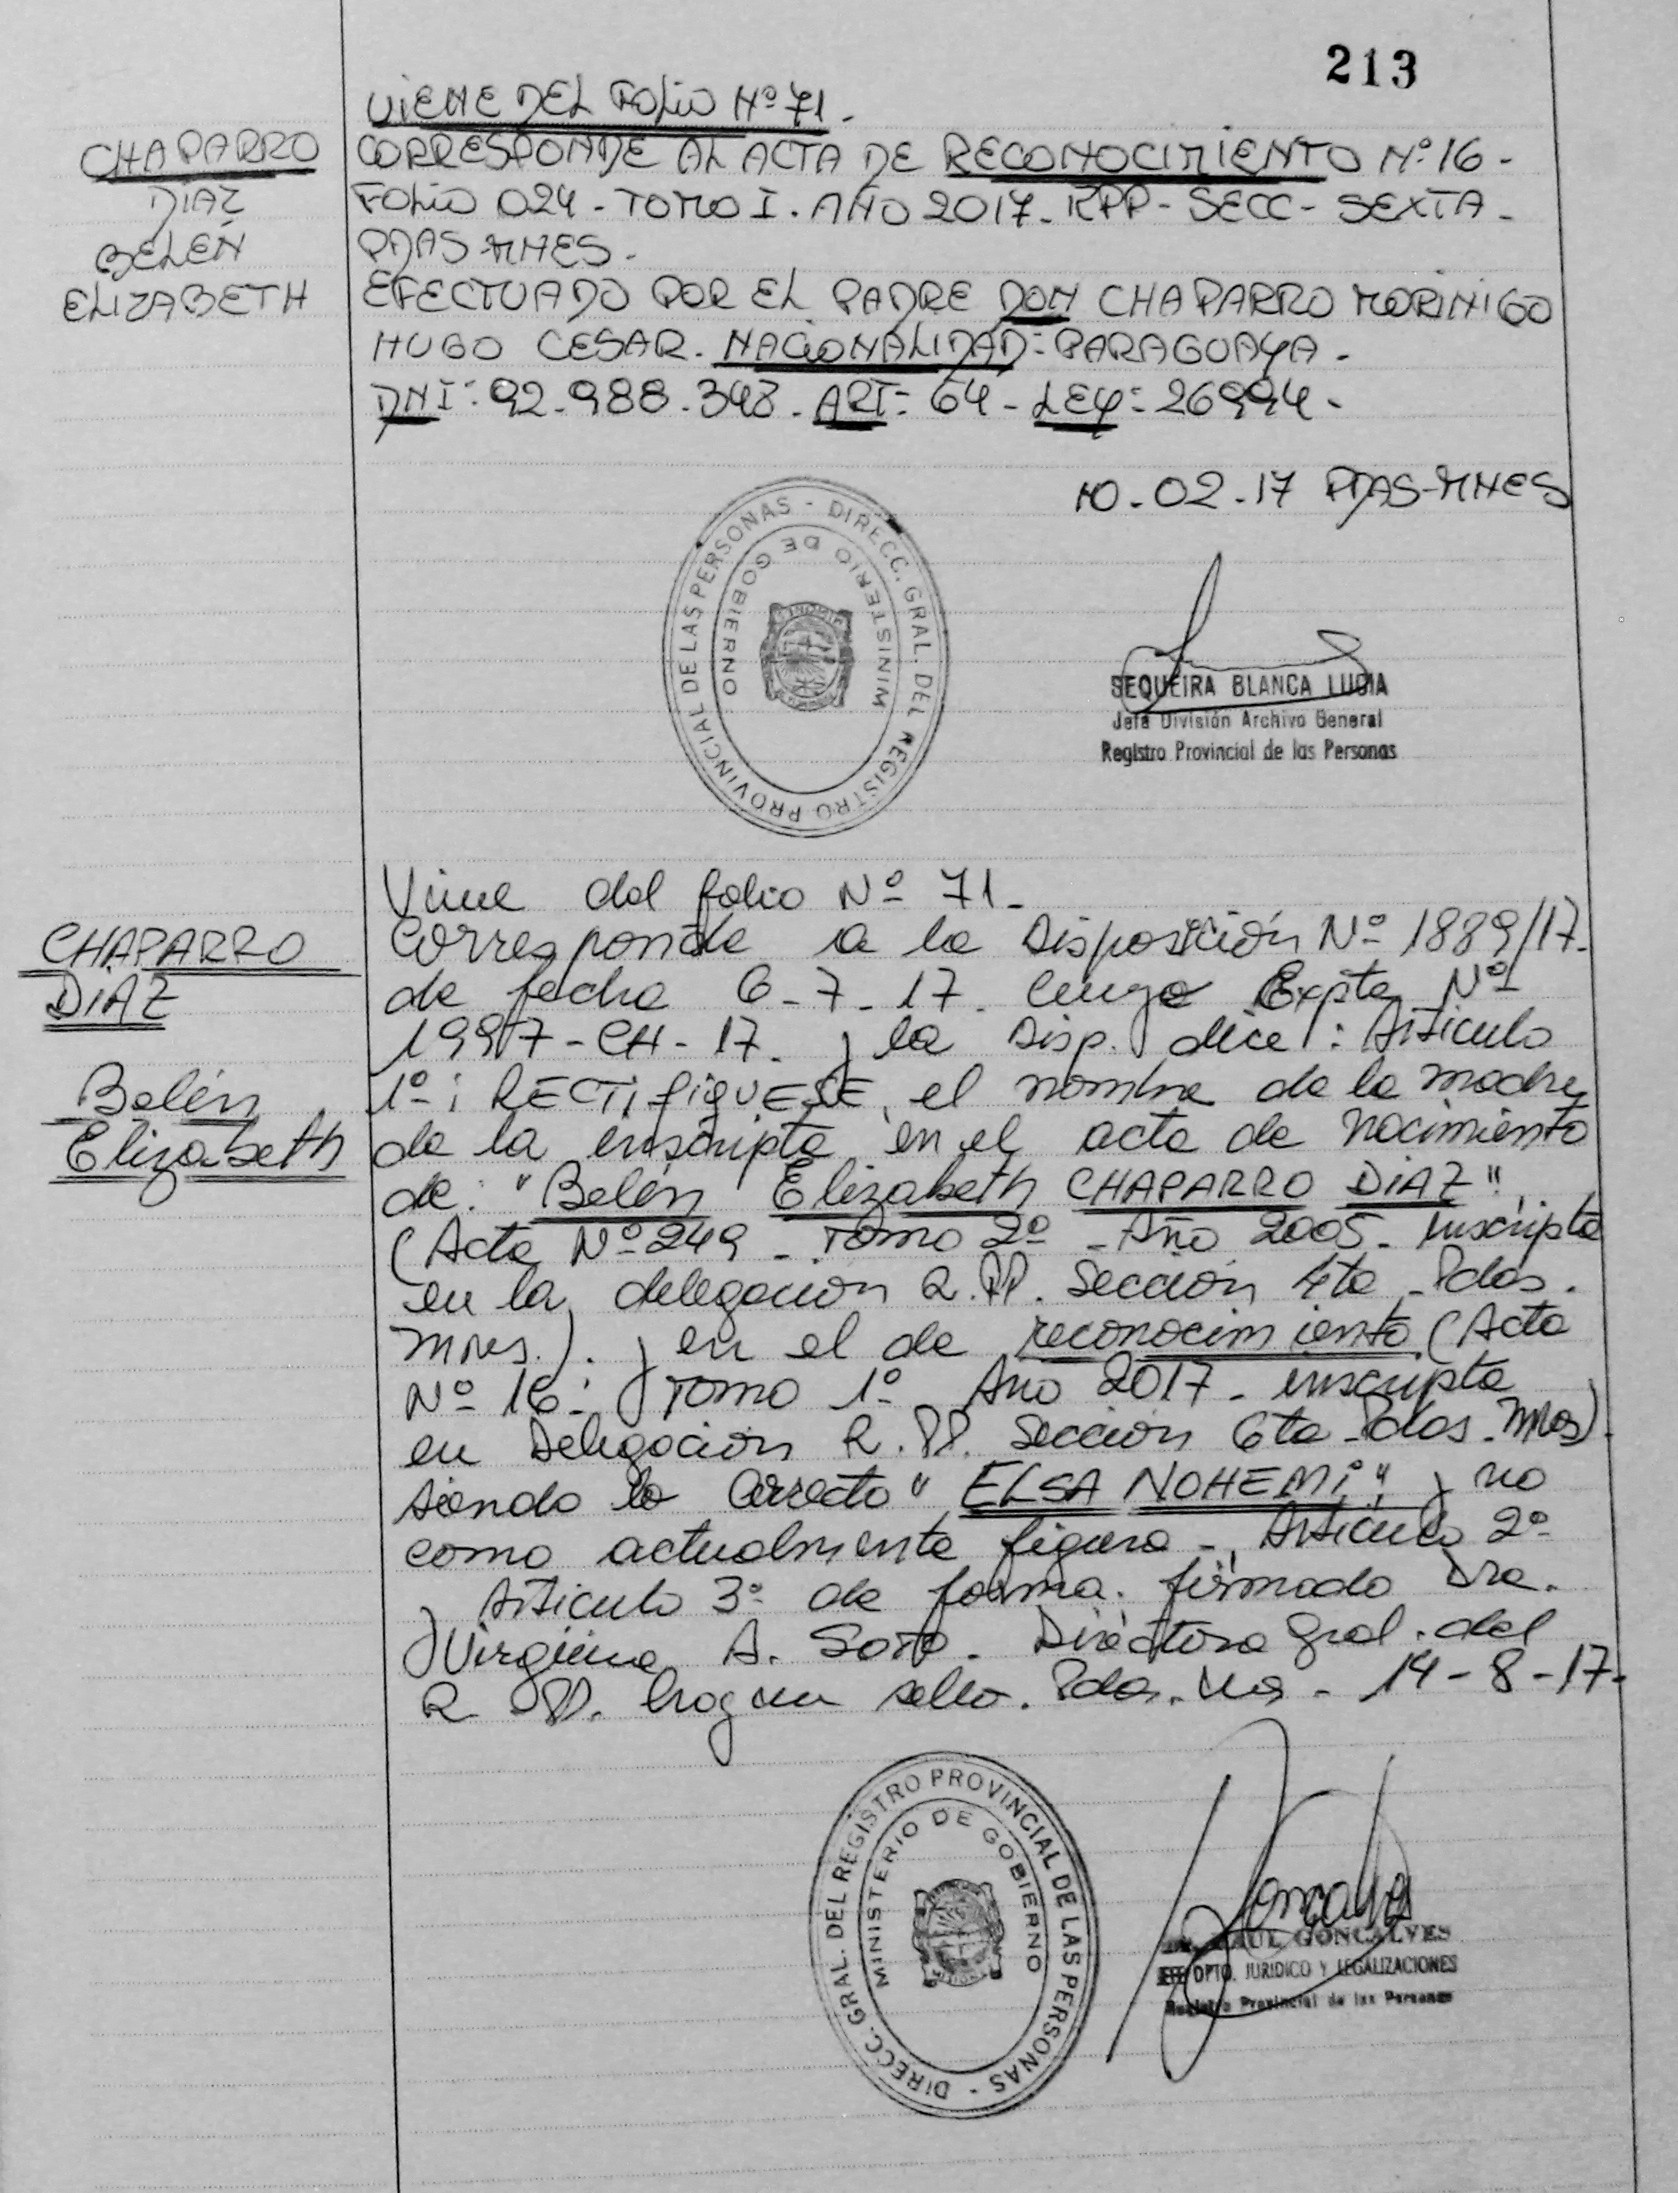 213
VIENE DEL FOLIO Nº 71.
CHAPARRO
DIAZ
BELEN
ELIZABETH
CORRESPONDE AL ACTA DE RECONOCIMIENTO Nº 16 -
FOLIO 024 - TOMO I. AÑO 2017. RPP - SECC - SEXTA -
PDAS-MNES.
EFECTUADO POR EL PADRE DON CHAPARRO MORINIGO
HUGO CESAR. NACIONALIDAD: PARAGUAYA.
DNI: 92.988.343. ART: 64 - LEY: 26994 -
10-02-17 PDAS-MNES
DIRECC. GRAL. DEL REGISTRO PROVINCIAL DE LAS PERSONAS -
MINISTERIO DE GOBIERNO
SEQUEIRA BLANCA LUCIA
Jefa División Archivo General
Registro Provincial de las Personas
Viene del folio Nº 71 -
CHAPARRO
DIAZ
Belén
Elizabeth
Corresponde a la Disposición Nº 1889/17.
de fecha 6-7-17. cuyo Expte Nº
1997-CH-17. y la Disp. dice: Artículo
1º: RECTIFIQUESE, el nombre de la madre
de la inscripta en el acta de nacimiento
de: "Belén Elizabeth CHAPARRO DIAZ"
(Acta Nº 249 - Tomo 2º - Año 2005 - inscripta
en la delegación R.PP. Sección 4ta - Pdas.
Mnes.). y en el de reconocimiento (Acta
Nº 16: Tomo 1º Año 2017 - inscripta
en Delegación R.PP. Sección 6ta - Pdas. Mnes)
siendo lo correcto "ELSA NOHEMI" y no
como actualmente figura - Artículo 2º
y Artículo 3º de forma. firmado Dra.
Virginia A. Soto. Directora Gral. del
R.PP. Hay un sello. Pdas. - 14-8-17-
DIRECC. GRAL. DEL REGISTRO PROVINCIAL DE LAS PERSONAS -
MINISTERIO DE GOBIERNO
RAUL GONCALVES
DPTO. JURIDICO Y LEGALIZACIONES
Registro Provincial de las Personas